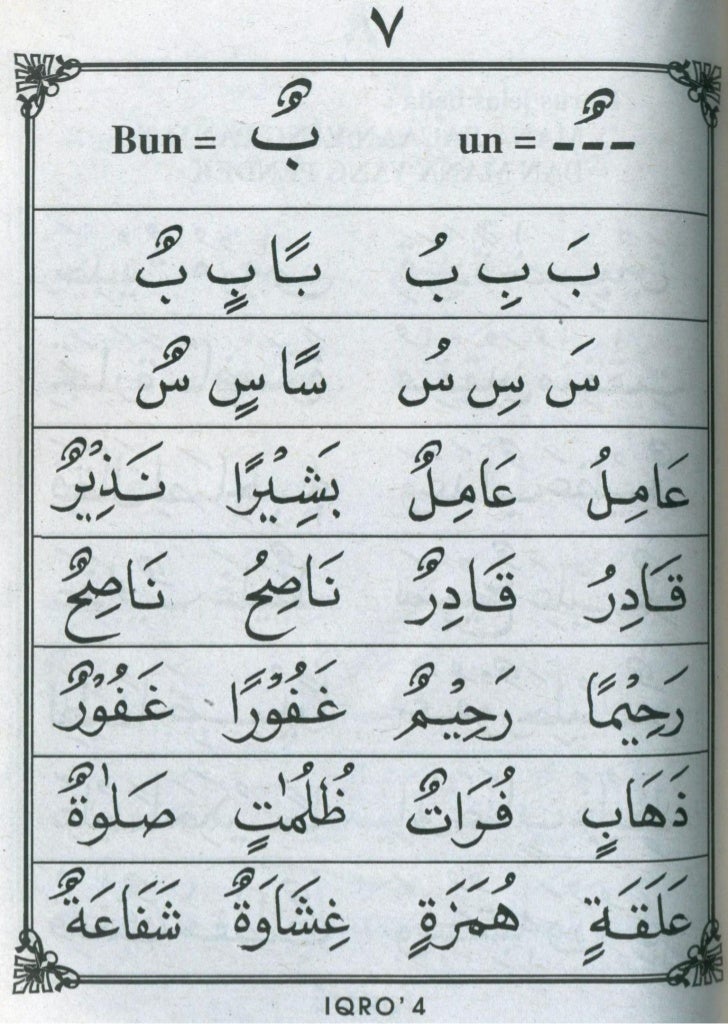 ٧
ـــٌـ = un بٌ = Bun
بَ بِ بُ بًا بٍ بٌ
سَ سِ سُ سًا سٍ سٌ
عَامِلُ عَامِلٌ بَشِيْرًا نَذِيْرٌ
قَادِرُ قَادِرٌ نَاصِحُ نَاصِحٌ
رَحِيْمًا رَحِيْمٌ غَفُوْرًا غَفُوْرٌ
ذَهَابٍ فُرَاتٌ ظُلُمٰتٍ صَلٰوةٌ
عَلَقَةٍ هُمَزَةٍ غِشَاوَةٌ شَفَاعَةٌ
IQRO' 4